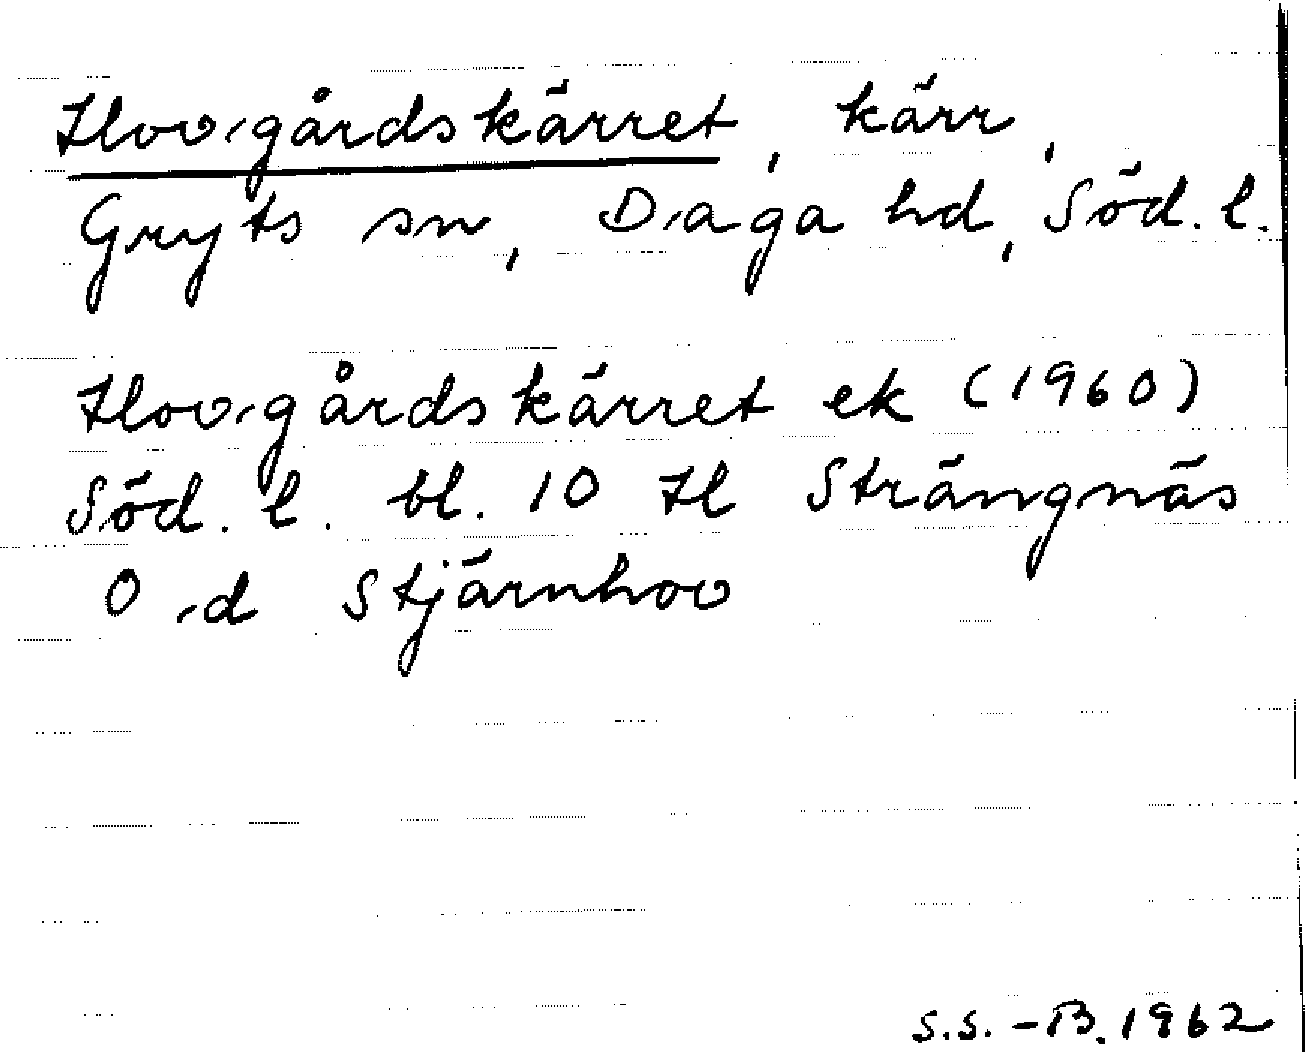 Hovgårdskärret, kärr,
Gryts sn, Daga hd, Söd. l.
Hovgårdskärret ek (1960)
Söd. l. bl. 10 H Strängnäs
O.d Stjärnhov
S.S.-B. 1962